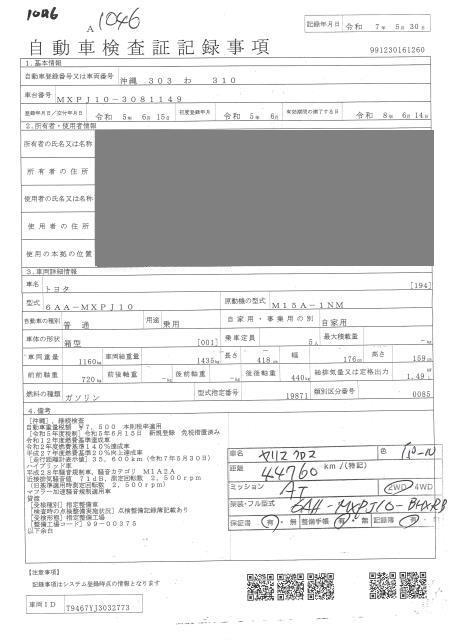 1046
A 1046
記録年月日 令和 7年 5月30日
自動車検査証記録事項
991230161260
1.基本情報
自動車登録番号又は車両番号 沖縄 303 わ 310
車台番号 MXPJ10-3081149
登録年月日/交付年月日 令和 5年 6月15日 初度登録年月 令和 5年 6月 有効期間の満了する日 令和 8年 6月14日
2.所有者・使用者情報
所有者の氏名又は名称
所有者の住所
使用者の氏名又は名称
使用者の住所
使用の本拠の位置
3.車両詳細情報
車名 トヨタ [194]
型式 6AA-MXPJ10 原動機の型式 M15A-1NM
自動車の種別 普通 用途 乗用 自家用・事業用の別 自家用
車体の形状 箱型 [001] 乗車定員 5人 最大積載量 -kg
車両重量 1160kg 車両総重量 1435kg 長さ 418cm 幅 176cm 高さ 159cm
前前軸重 720kg 前後軸重 -kg 後前軸重 -kg 後後軸重 440kg 総排気量又は定格出力 1.49L
燃料の種類 ガソリン 型式指定番号 19871 類別区分番号 0085
4.備考
[沖縄]，継続検査
自動車重量税額 ¥7，500 本則税率適用
[令和5年度税制]令和5年6月15日 新規登録 免税措置済み
令和12年度燃費基準達成車
令和2年度燃費基準140%達成車
平成27年度燃費基準20%向上達成車
[走行距離計表示値]35，600km(令和7年5月30日)
ハイブリッド車
平成28年騒音規制車，騒音カテゴリ M1A2A
近接排気騒音値 71dB，測定回転数 2，500rpm
(旧基準適用時測定回転数 2，500rpm)
マフラー加速騒音規制適用車
貸渡
[受検種別]指定整備車
[検査時の点検整備実施状況]点検整備記録簿記載あり
[受検形態]指定整備工場
[整備工場コード]99-00375
以下余白
車名 ヤリスクロス 色
距離 44760 km/(特記)
ミッション AT 2WD・4WD
架装・フル型式 6AA-MXPJ10-BHXRB
保証書 有・無 整備手帳 有・無 記録簿 有・
【注意事項】
記録事項はシステム登録時点の情報となります
車両ID T9467YJ3032773